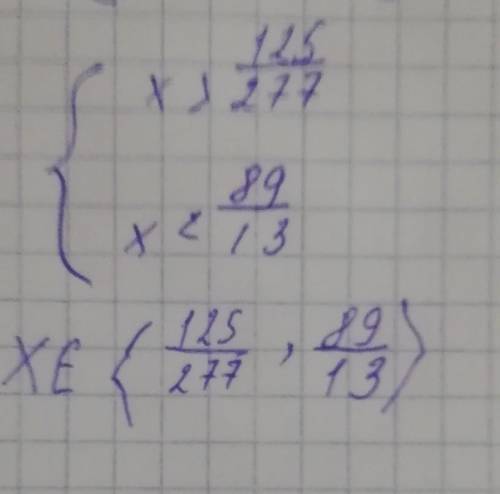 { x > 125/277
x < 89/13
X ∈ ⟨ 125/277 , 89/13 ⟩